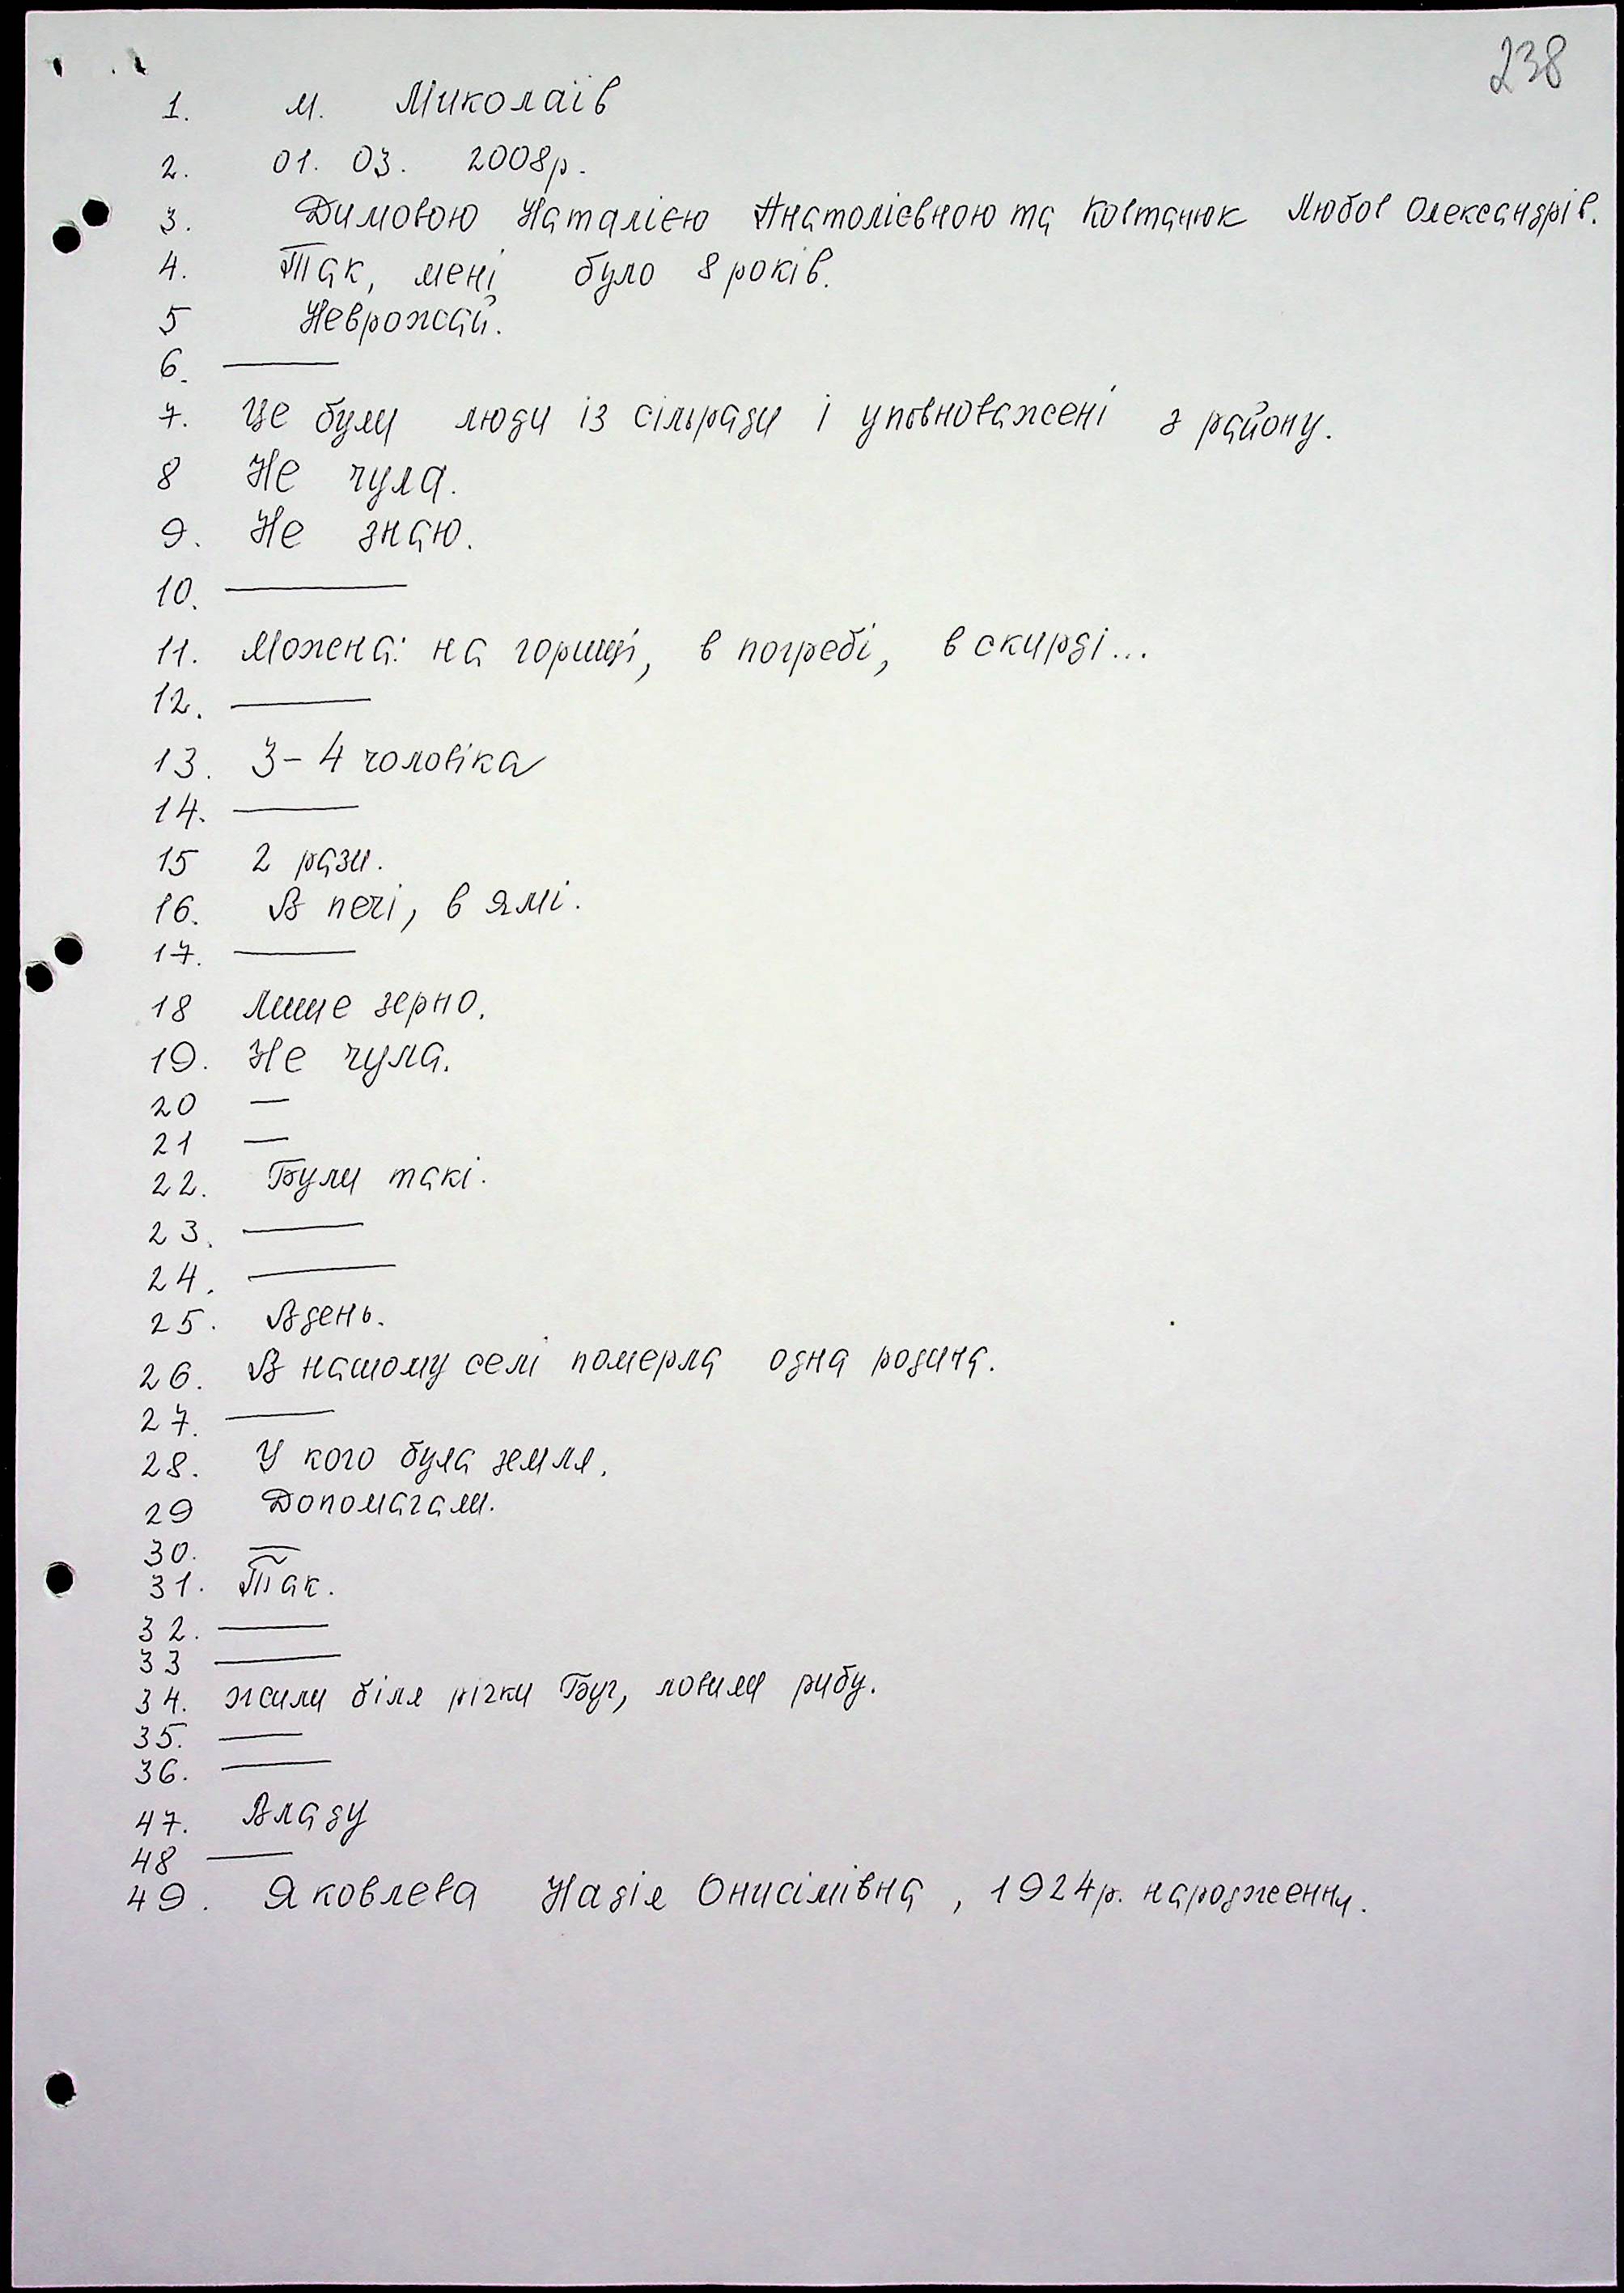 238
1. м. Миколаїв
2. 01. 03. 2008р.
3. Димовою Наталією Анатоліевною та Ковтанюк Любов Олександрів.
4. Так, мені було 8 років.
5 Неврожай.
6. —
7. Це були люди із сільради і уповноважені з району.
8 Не чула.
9. Не знаю.
10. —
11. Можна: на горищі, в погребі, в скирді...
12. —
13. 3-4 чоловіка
14. —
15 2 рази.
16. В печі, в ямі.
17. —
18 Лише зерно.
19. Не чула.
20 —
21 —
22. Були такі.
23. —
24. —
25. Вдень.
26. В нашому селі померла одна родина.
27. —
28. У кого була земля.
29 Допомагали.
30. —
31. Так.
32. —
33 —
34. жили біля річки Буг, ловили рибу.
35. —
36. —
47. Владу
48 —
49. Яковлева Надія Онисімівна, 1924р. народження.